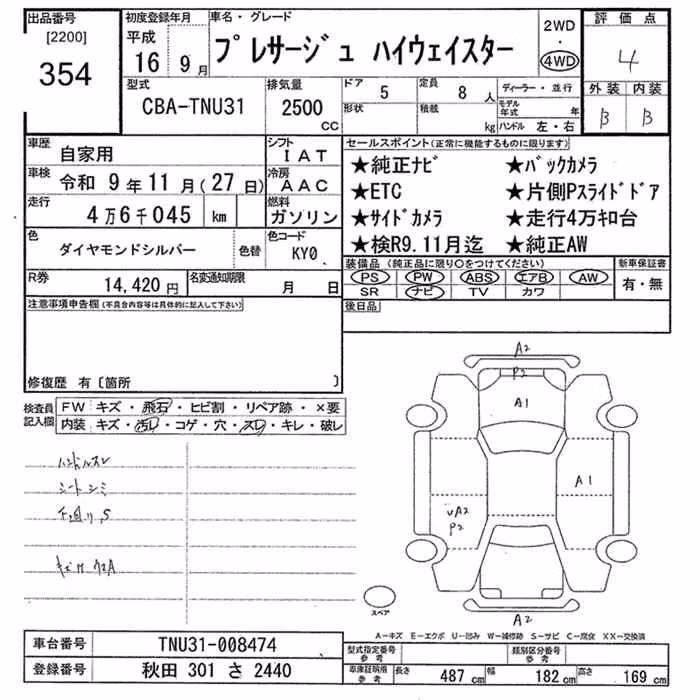 出品番号
[2200]
354
初度登録年月
平成
16 9月
車名・グレード
プレサージュ ハイウェイスター
2WD
・
4WD
評価点
4
外装 内装
B B
型式
CBA-TNU31
排気量
2500
CC
ドア 5
定員 8人
形状
積載 kg
ディーラー・並行
モデル年式 年
ハンドル 左・右
車歴 自家用
シフト IAT
車検 令和 9年11月(27日)
冷房 AAC
走行 4万6千045 km
燃料 ガソリン
色 ダイヤモンドシルバー
色替
色コード KY0
R券 14,420円
名変通知期限 月 日
セールスポイント(正常に機能するものに限ります)
★純正ナビ ★バックカメラ
★ETC ★片側Pスライドドア
★サイドカメラ ★走行4万キロ台
★検R9.11月迄 ★純正AW
装備品(純正品に限り○をつけてください)
PS PW ABS エアB AW
SR ナビ TV カワ
新車保証書
有・無
後日品
注意事項申告欄(不具合内容等は具体的に記入して下さい)
修復歴 有〔箇所 〕
検査員記入欄
FW キズ・飛石・ヒビ割・リペア跡・×要
内装 キズ・汚レ・コゲ・穴・スレ・キレ・破レ
ハンドルスレ
シートシミ
A2
P2
A1
A1
UA2
P2
A2
スペア
A−キズ E−エクボ U−凹み W−補修跡 S−サビ C−腐食 XX−交換済
車台番号 TNU31-008474
登録番号 秋田 301 さ 2440
型式指定番号 参考
類別区分番号 参考
車庫証明用 参考
長さ 487cm 幅 182cm 高さ 169cm